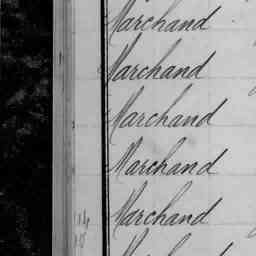 Marchand
Marchand
Marchand
Marchand
14 Marchand
15